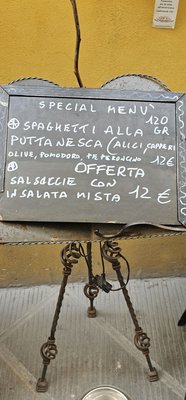 SPECIAL MENÙ
SPAGHETTI ALLA 120 GR
PUTTANESCA (ALICI, CAPPERI
OLIVE, POMODORO, PEPERONCINO 12€
OFFERTA
SALSICCIE CON
INSALATA MISTA 12 €